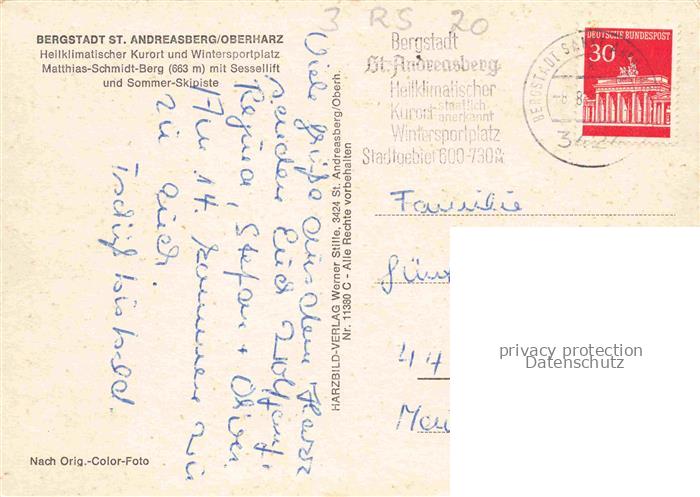 3 RS 20
BERGSTADT ST. ANDREASBERG/OBERHARZ
Heilklimatischer Kurort und Wintersportplatz
Matthias-Schmidt-Berg (663 m) mit Sessellift
und Sommer-Skipiste
Viele Grüße aus dem Harz
senden Euch Wolfgang,
Regina, Stefan + Oliver.
Am 14. kommen wir
zu Euch.
Tschüß bis bald.
Nach Orig.-Color-Foto
HARZBILD-VERLAG Werner Stille, 3424 St. Andreasberg/Oberh.
Nr. 11380 C - Alle Rechte vorbehalten
Bergstadt
St. Andreasberg
Heilklimatischer
Kurort staatlich anerkannt
Wintersportplatz
Stadtgebiet 600-730
BERGSTADT SANKT
DEUTSCHE BUNDESPOST
30
Familie
44
privacy protection
Datenschutz